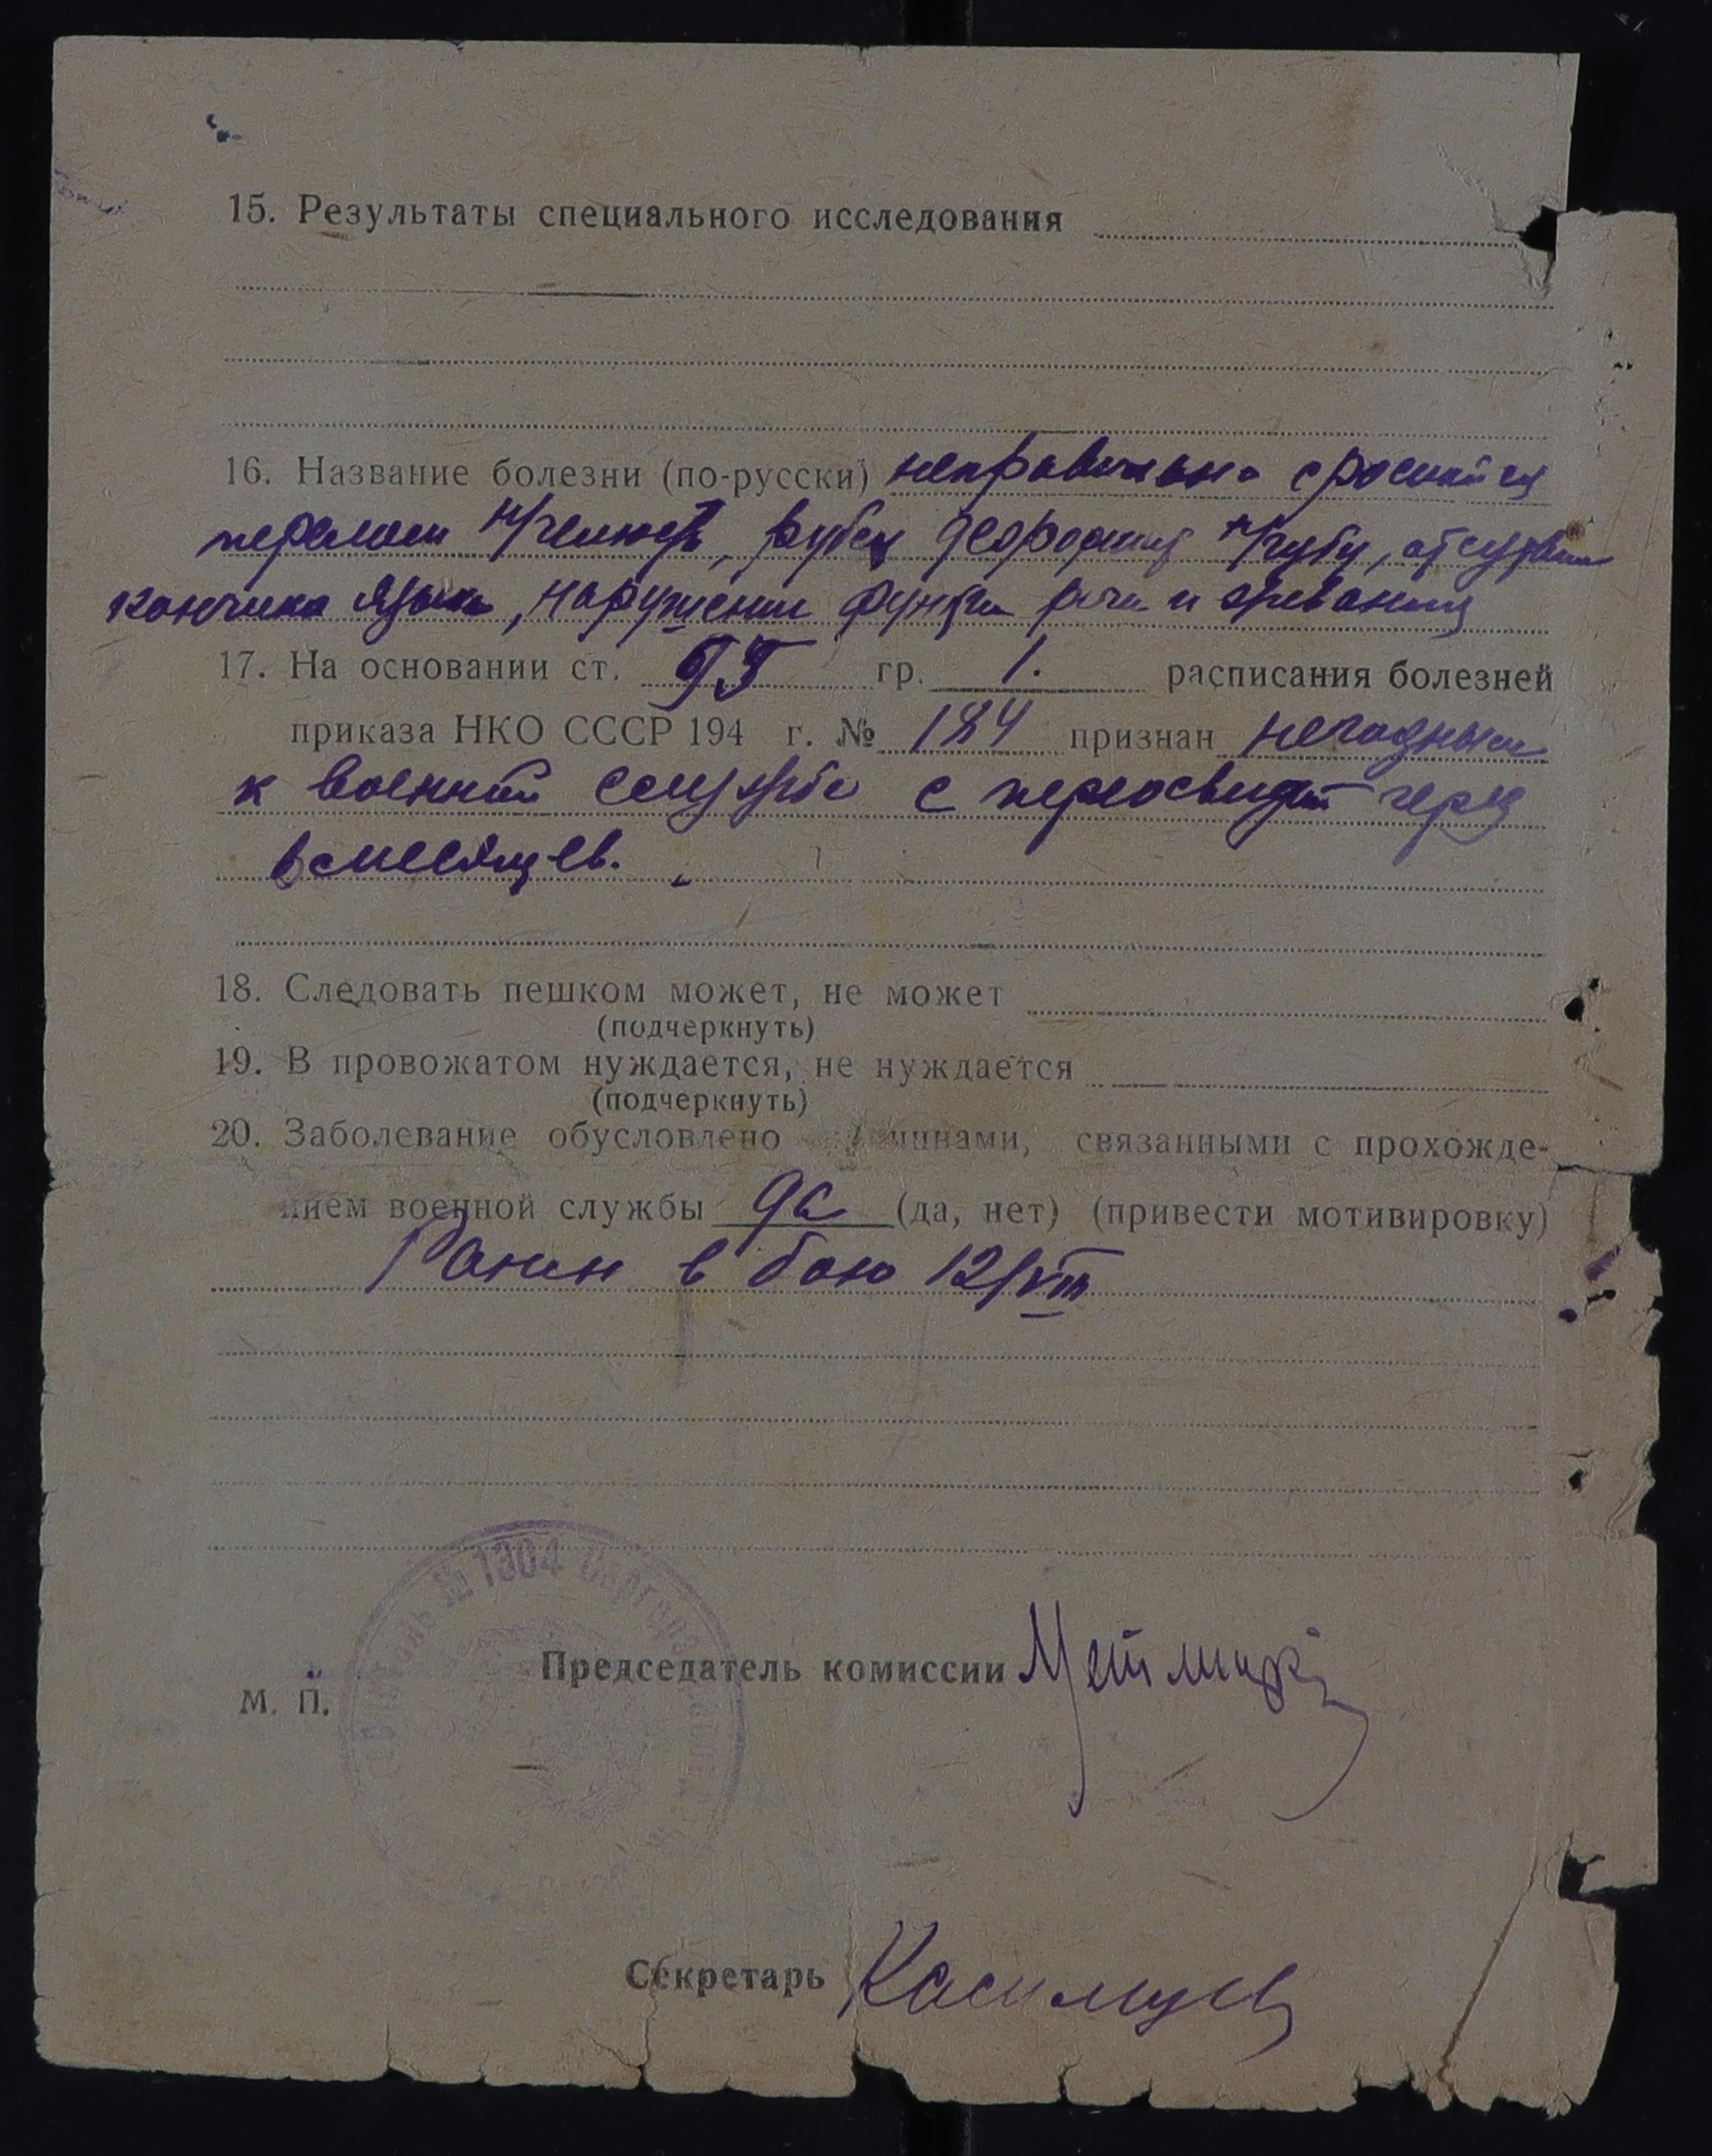 15. Результаты специального исследования
16. Название болезни (по-русски) неправильно сросшийся
перелом н/челюсти, рубец деформ н/губу, отсутствие
кончика языка, нарушение функции речи и жевания
17. На основании ст. 95 гр. 1. расписания болезней
приказа НКО СССР 194 г. № 184 признан негодным
к военной службе с переосвидет через
6 месяцев.
18. Следовать пешком может, не может
(подчеркнуть)
19. В провожатом нуждается, не нуждается
(подчеркнуть)
20. Заболевание обусловлено чинами, связанными с прохожде-
нием военной службы да (да, нет) (привести мотивировку)
Ранен в бою 12/VIII
№ 1304
Председатель комиссии
М. П.
Секретарь